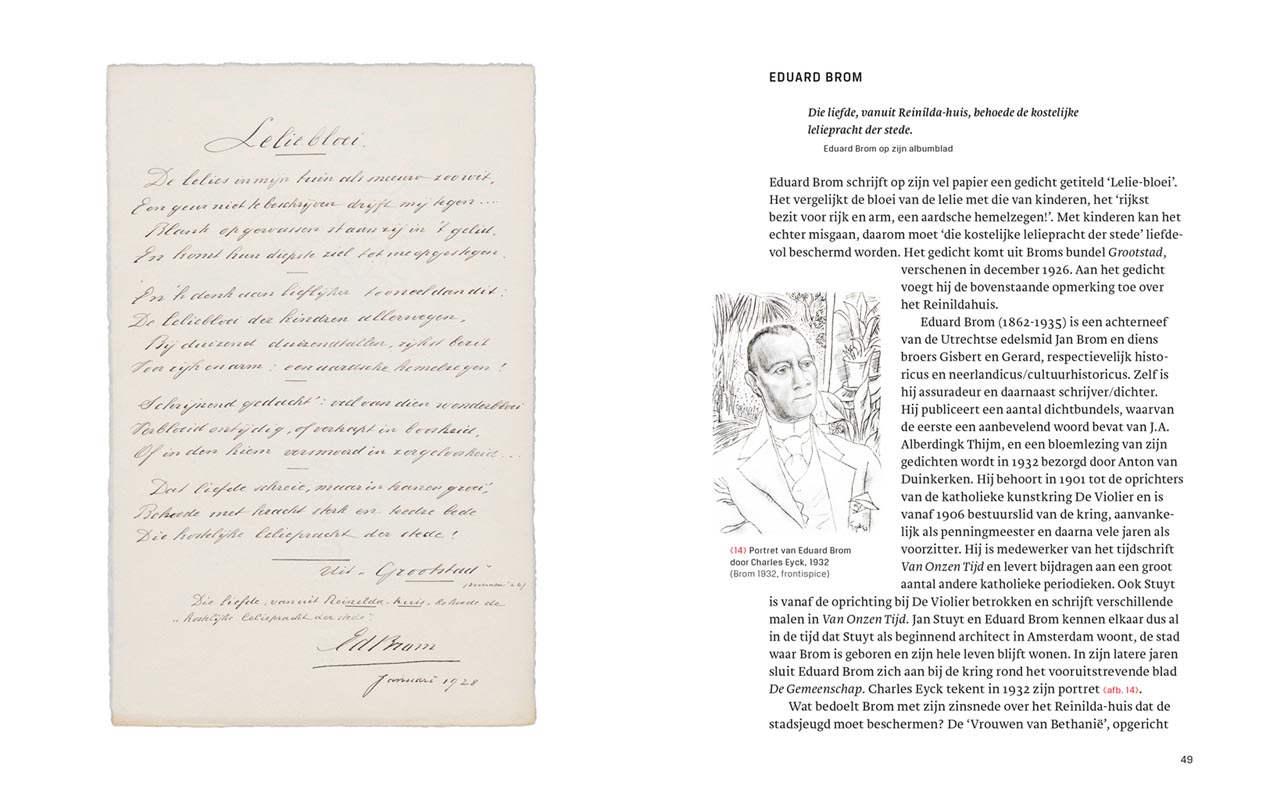 Leliebloei.
De lelies in mijn tuin als sneeuw zoo wit,
Een geur niet te beschrijven drijft mij tegen ....
Blank opgewassen staan zij in 't gelid.
En komt hun diepste ziel tot me opgestegen.
En 'k denk dan lieflijker tooneel dan dit:
De leliebloei der kindren allerwegen,
Bij duizend duizendtallen, rijkst bezit
Voor rijk en arm: een aardsche hemelzegen!
Schrijnend gedacht': veel van dien wonderbloei
Verbloeid ontijdig, of verkapt in boosheid,
Of in den kiem versmoord in zorgeloosheid...
Dat liefde schreie, maar in haren groei,
Behoede met kracht sterk en teedre bede
Die kostelijke leliepracht der stede!
Uit „Grootstad"
(December '26)
Die liefde, vanuit Reinilda-huis, behoede de
„kostelijke leliepracht der stede".
Ed Brom
Januari 1928
EDUARD BROM
Die liefde, vanuit Reinilda-huis, behoede de kostelijke
leliepracht der stede.
Eduard Brom op zijn albumblad
Eduard Brom schrijft op zijn vel papier een gedicht getiteld ‘Lelie-bloei’.
Het vergelijkt de bloei van de lelie met die van kinderen, het ‘rijkst
bezit voor rijk en arm, een aardsche hemelzegen!’. Met kinderen kan het
echter misgaan, daarom moet ‘die kostelijke leliepracht der stede’ liefde-
vol beschermd worden. Het gedicht komt uit Broms bundel Grootstad,
verschenen in december 1926. Aan het gedicht
voegt hij de bovenstaande opmerking toe over
het Reinildahuis.
Eduard Brom (1862-1935) is een achterneef
van de Utrechtse edelsmid Jan Brom en diens
broers Gisbert en Gerard, respectievelijk histo-
ricus en neerlandicus/cultuurhistoricus. Zelf is
hij assuradeur en daarnaast schrijver/dichter.
Hij publiceert een aantal dichtbundels, waarvan
de eerste een aanbevelend woord bevat van J.A.
Alberdingk Thijm, en een bloemlezing van zijn
gedichten wordt in 1932 bezorgd door Anton van
Duinkerken. Hij behoort in 1901 tot de oprichters
van de katholieke kunstkring De Violier en is
vanaf 1906 bestuurslid van de kring, aanvanke-
lijk als penningmeester en daarna vele jaren als
voorzitter. Hij is medewerker van het tijdschrift
Van Onzen Tijd en levert bijdragen aan een groot
aantal andere katholieke periodieken. Ook Stuyt
is vanaf de oprichting bij De Violier betrokken en schrijft verschillende
malen in Van Onzen Tijd. Jan Stuyt en Eduard Brom kennen elkaar dus al
in de tijd dat Stuyt als beginnend architect in Amsterdam woont, de stad
waar Brom is geboren en zijn hele leven blijft wonen. In zijn latere jaren
sluit Eduard Brom zich aan bij de kring rond het vooruitstrevende blad
De Gemeenschap. Charles Eyck tekent in 1932 zijn portret ‹afb. 14›.
Wat bedoelt Brom met zijn zinsnede over het Reinilda-huis dat de
stadsjeugd moet beschermen? De ‘Vrouwen van Bethanië’, opgericht
‹14› Portret van Eduard Brom
door Charles Eyck, 1932
(Brom 1932, frontispice)
49